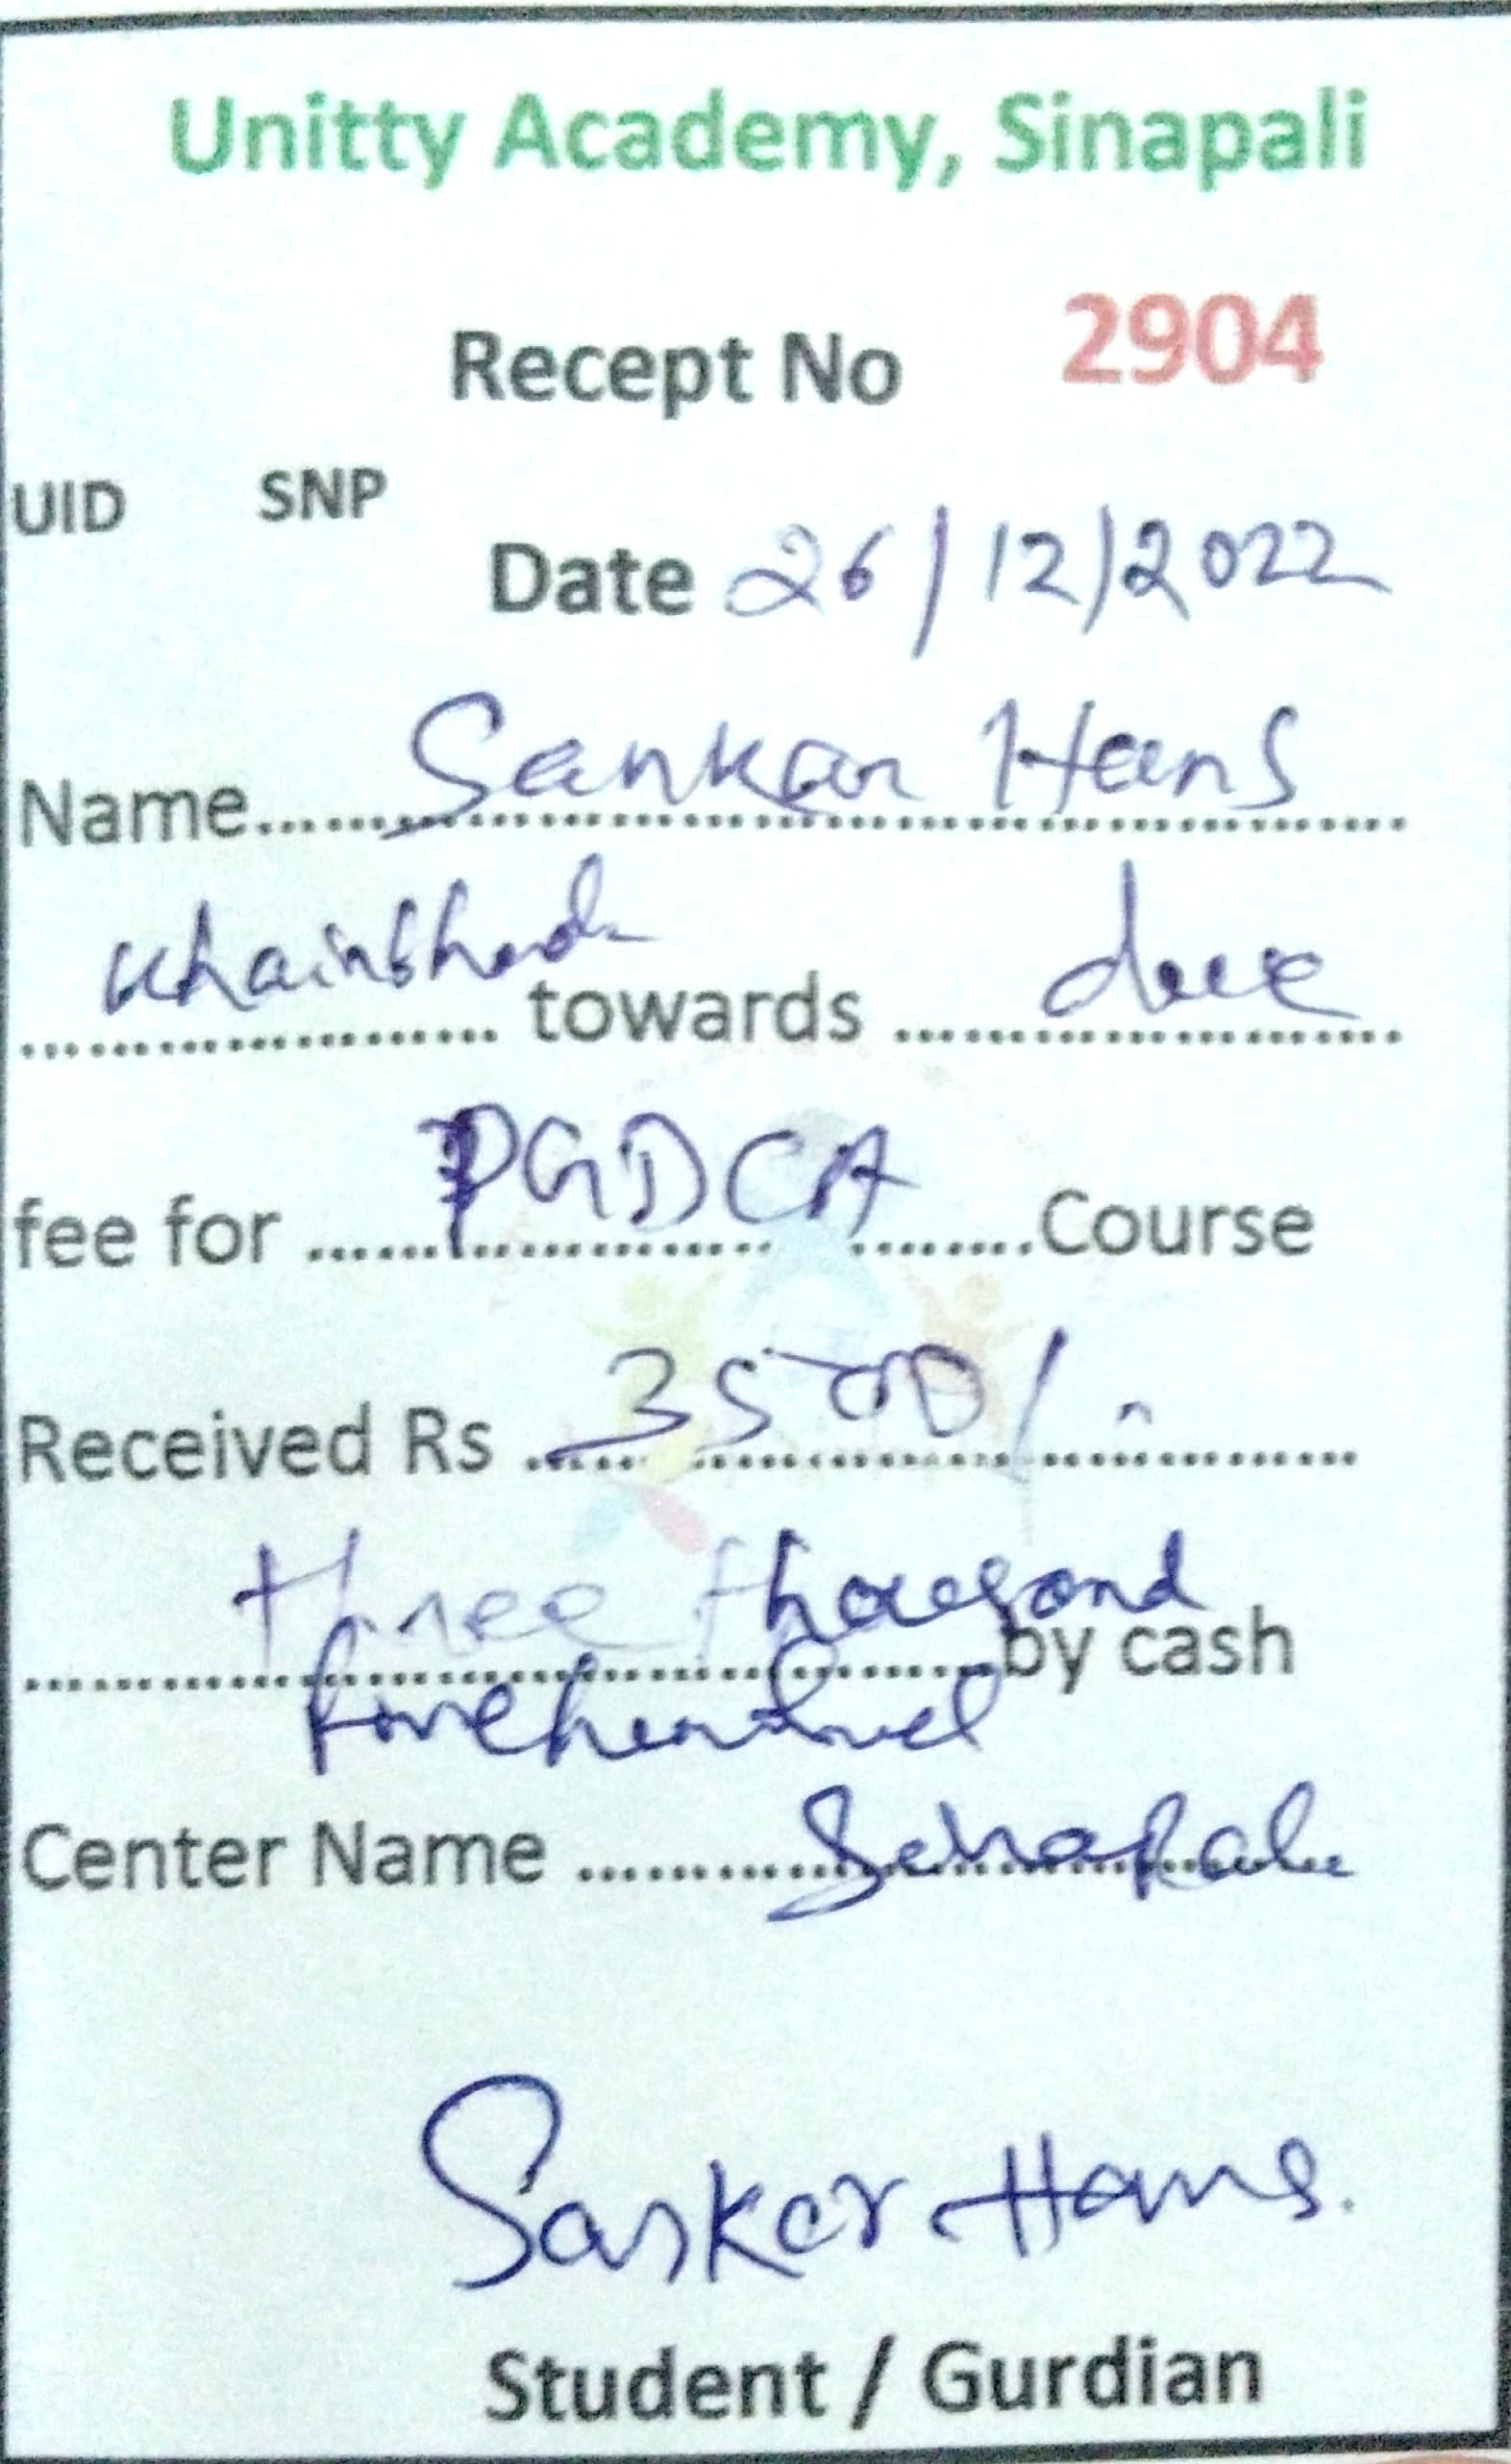 Unitty Academy, Sinapali
Recept No 2904
UID SNP
Date 26/12/2022
Name.......Sankar Hans
.................... towards ........due
fee for ......PGDCA........Course
Received Rs ....3500/-
three thousand
....................by cash
fivehundred
Center Name ............Sinapali
Sankar Hans.
Student / Gurdian